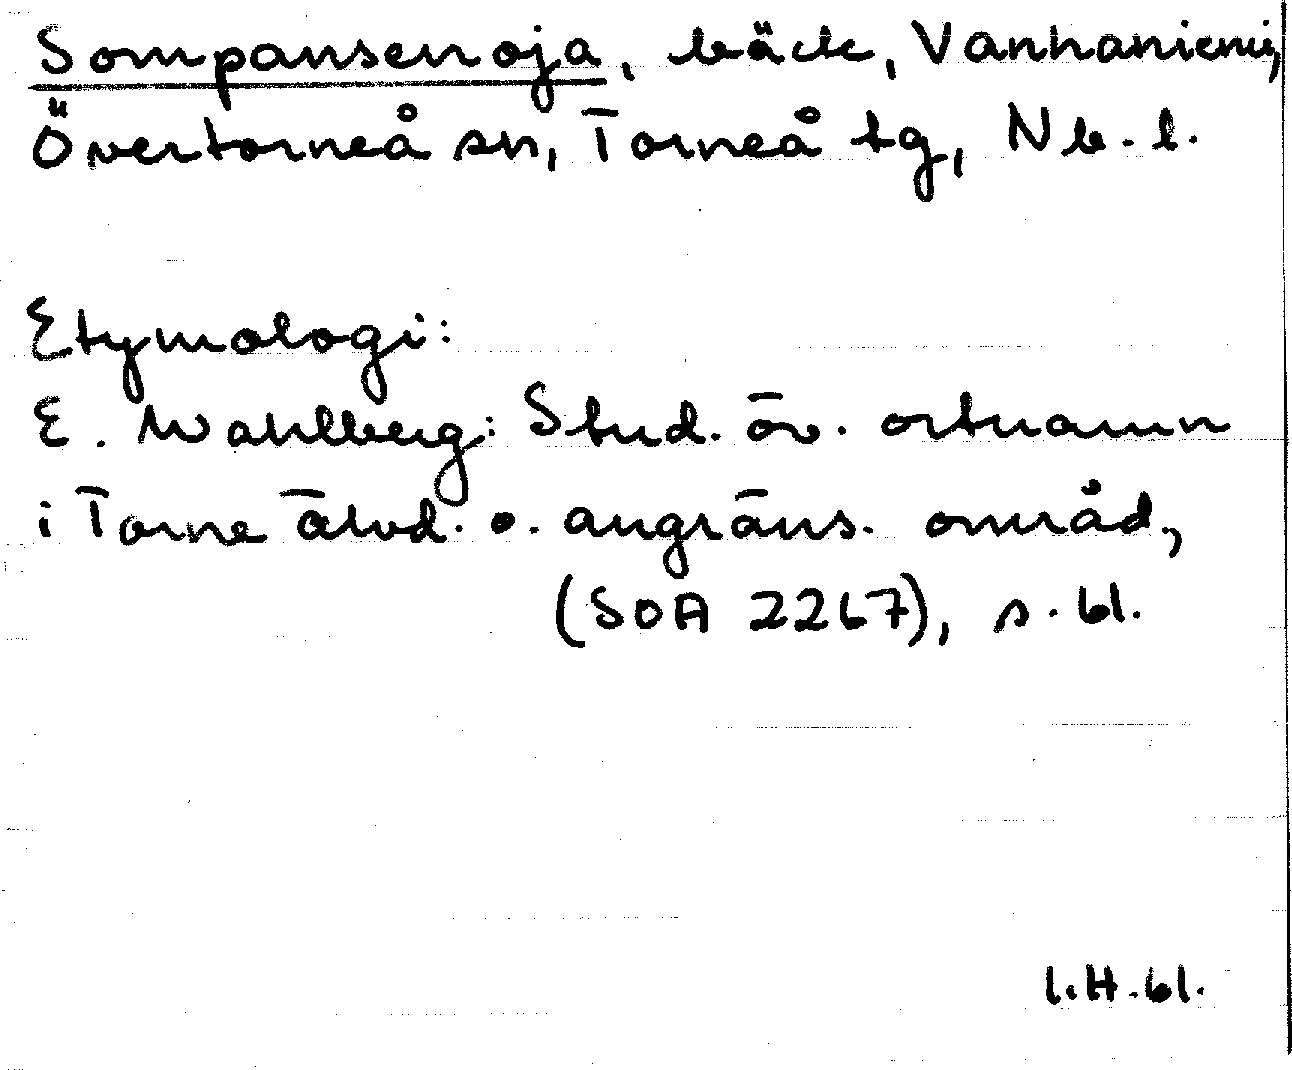 Sompansenoja, bäck, Vanhaniemi,
Övertorneå sn, Torneå tg, Nb. l.
Etymologi:
E. Wahlberg: Stud. öv. ortnamn
i Torne älvd. o. angräns. områd.,
(SOA 2267), s. 61.
I.H.61.